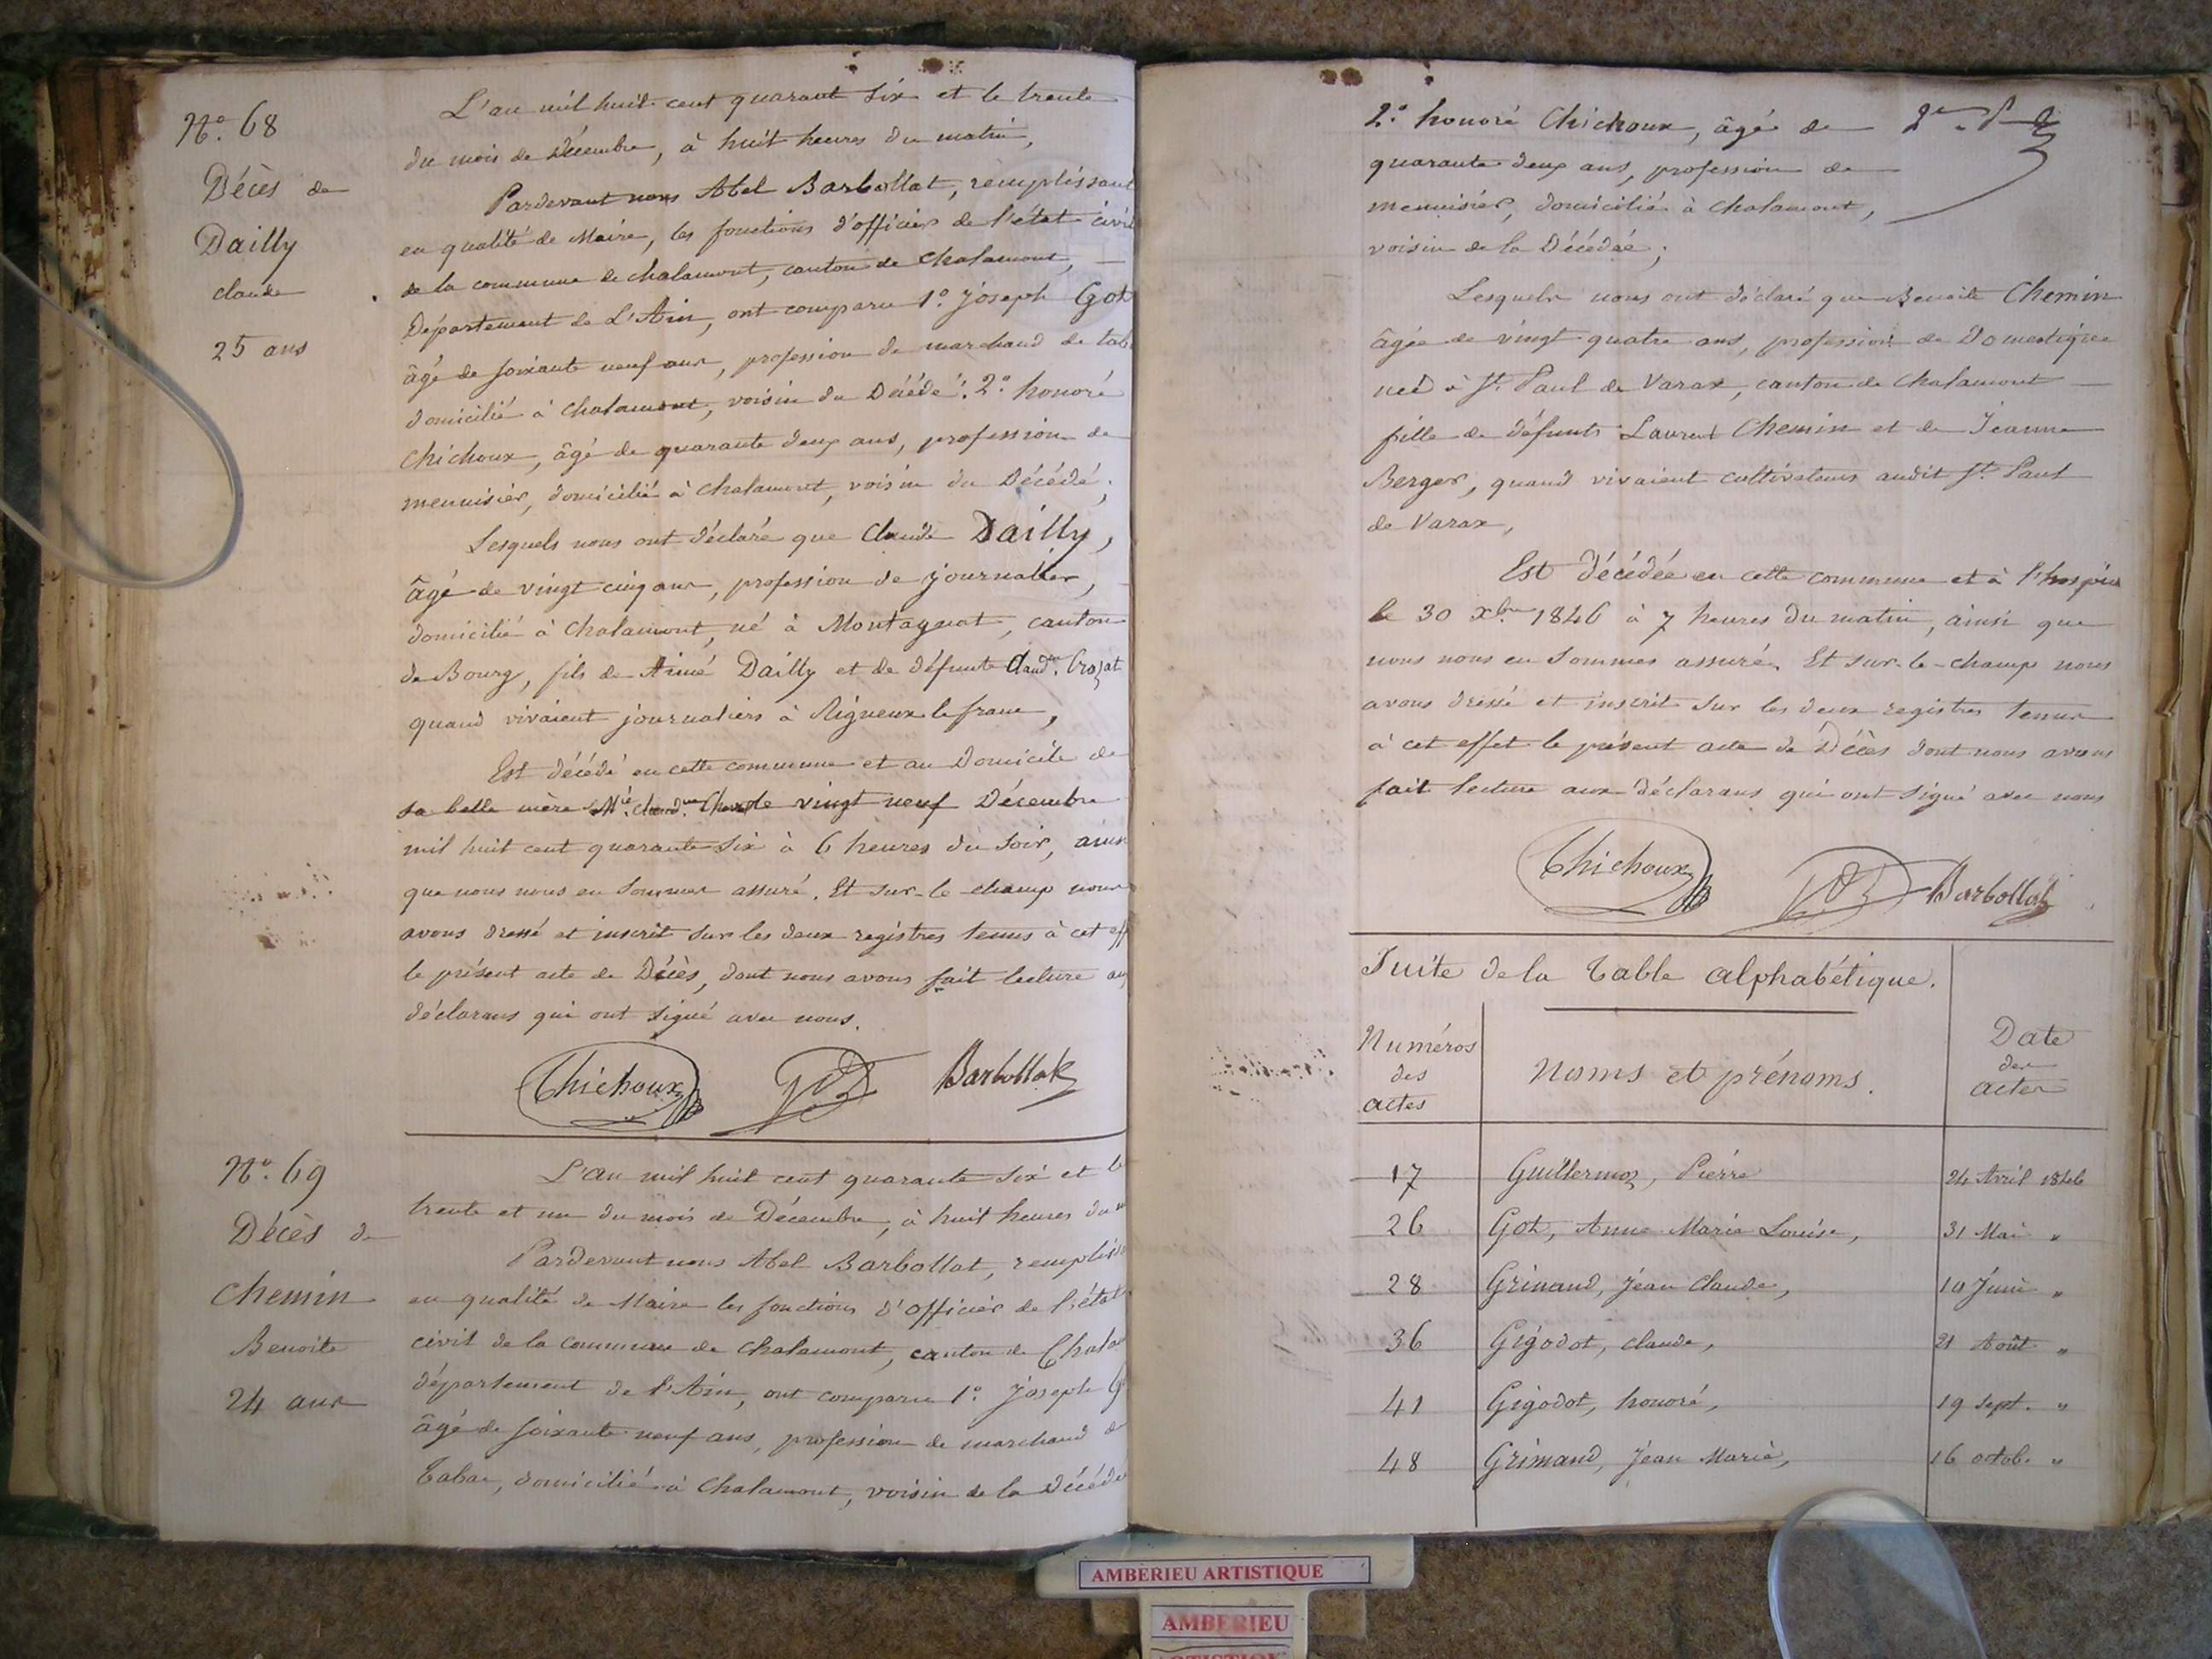 N.o 68
Décès de
Dailly
claude
25 ans
L'an mil huit cent quarant six et le trente
du mois de Décembre, à huit heures du matin,
Pardevant nous Abel Barbollat, remplissant
en qualité de Maire, les fonctions d'officier de l'état civil
de la commune de chalamont, canton de Chalamont,
Département de L'Ain, ont comparu 1.o Joseph Got
âgé de soixante neuf ans, profession de marchand de tab
domicilié à Chalamont, voisin du Décédé; 2.o honoré
Chichoux, âgé de quarante deux ans, profession de
menuisier, domicilié à Chalamont, voisin du Décédé;
Lesquels nous ont déclaré que Claude Dailly,
âgé de vingt cinq ans, profession de journalier,
domicilié à Chalamont, né à Montagnat, canton
de Bourg, fils de Aimé Dailly et de défunte Claud.ne Crozat
quand vivaient journaliers à Rigneux le franc,
Est décédé en cette commune et au Domicile de
sa belle mère M.ie Claud.ne le vingt neuf Décembre
mil huit cent quarante six à 6 heures du soir, ainsi
que nous nous en sommes assuré. Et sur-le-champ nous
avons dressé et inscrit sur les deux registres tenus à cet eff
le présent acte de Décès, dont nous avons fait lecture aux
déclarans qui ont signé avec nous.
Chichoux Got Barbollat
N.o 69
Décès de
Chemin
Benoite
24 ans
L'an mil huit cent quarante six et le
trente et un du mois de Décembre, à huit heures du m
Pardevant nous Abel Barbollat, remplissa
en qualité de Maire les fonctions d'officier de l'état
civil de la commune de Chalamont, canton de Chala
département de l'Ain, ont comparu 1.o Joseph G
âgé de soixante neuf ans, profession de marchand d
Tabac, domicilié à Chalamont, voisin de la Décédé
2.o honoré Chichoux, âgé de
quarante deux ans, profession de
menuisier, domicilié à Chalamont,
voisin de la Décédée;
Lesquels nous ont déclaré que Benoite Chemin
âgée de vingt quatre ans, profession de Domestique
née à St. Paul de Varax, canton de Chalamont
fille de défunts Laurent Chemin et de Jeanne
Berger, quand vivaient cultivateurs audit St. Paul
de Varax,
Est décédée en cette commune et à l'hospice
le 30 xbre 1846 à 7 heures du matin, ainsi que
nous nous en sommes assuré. Et sur-le-champ nous
avons dressé et inscrit sur les deux registres tenus
à cet effet le présent acte de Décès dont nous avons
fait lecture aux déclarans qui ont signé avec nous
Chichoux Got Barbollat
Suite de la Table alphabétique.
Numéros des actes Noms et prénoms. Date des actes
17 Guillermoz, Pierre 24 Avril 1846
26 Got, Anne Marie Louise, 31 Mai "
28 Grimand, Jean Claude, 10 Juin "
36 Gigodot, claude, 21 Août "
41 Gigodot, honoré, 19 sept. "
48 Grimand, Jean Marie, 16 octob. "
AMBERIEU ARTISTIQUE
AMBERIEU
ARTISTIQUE